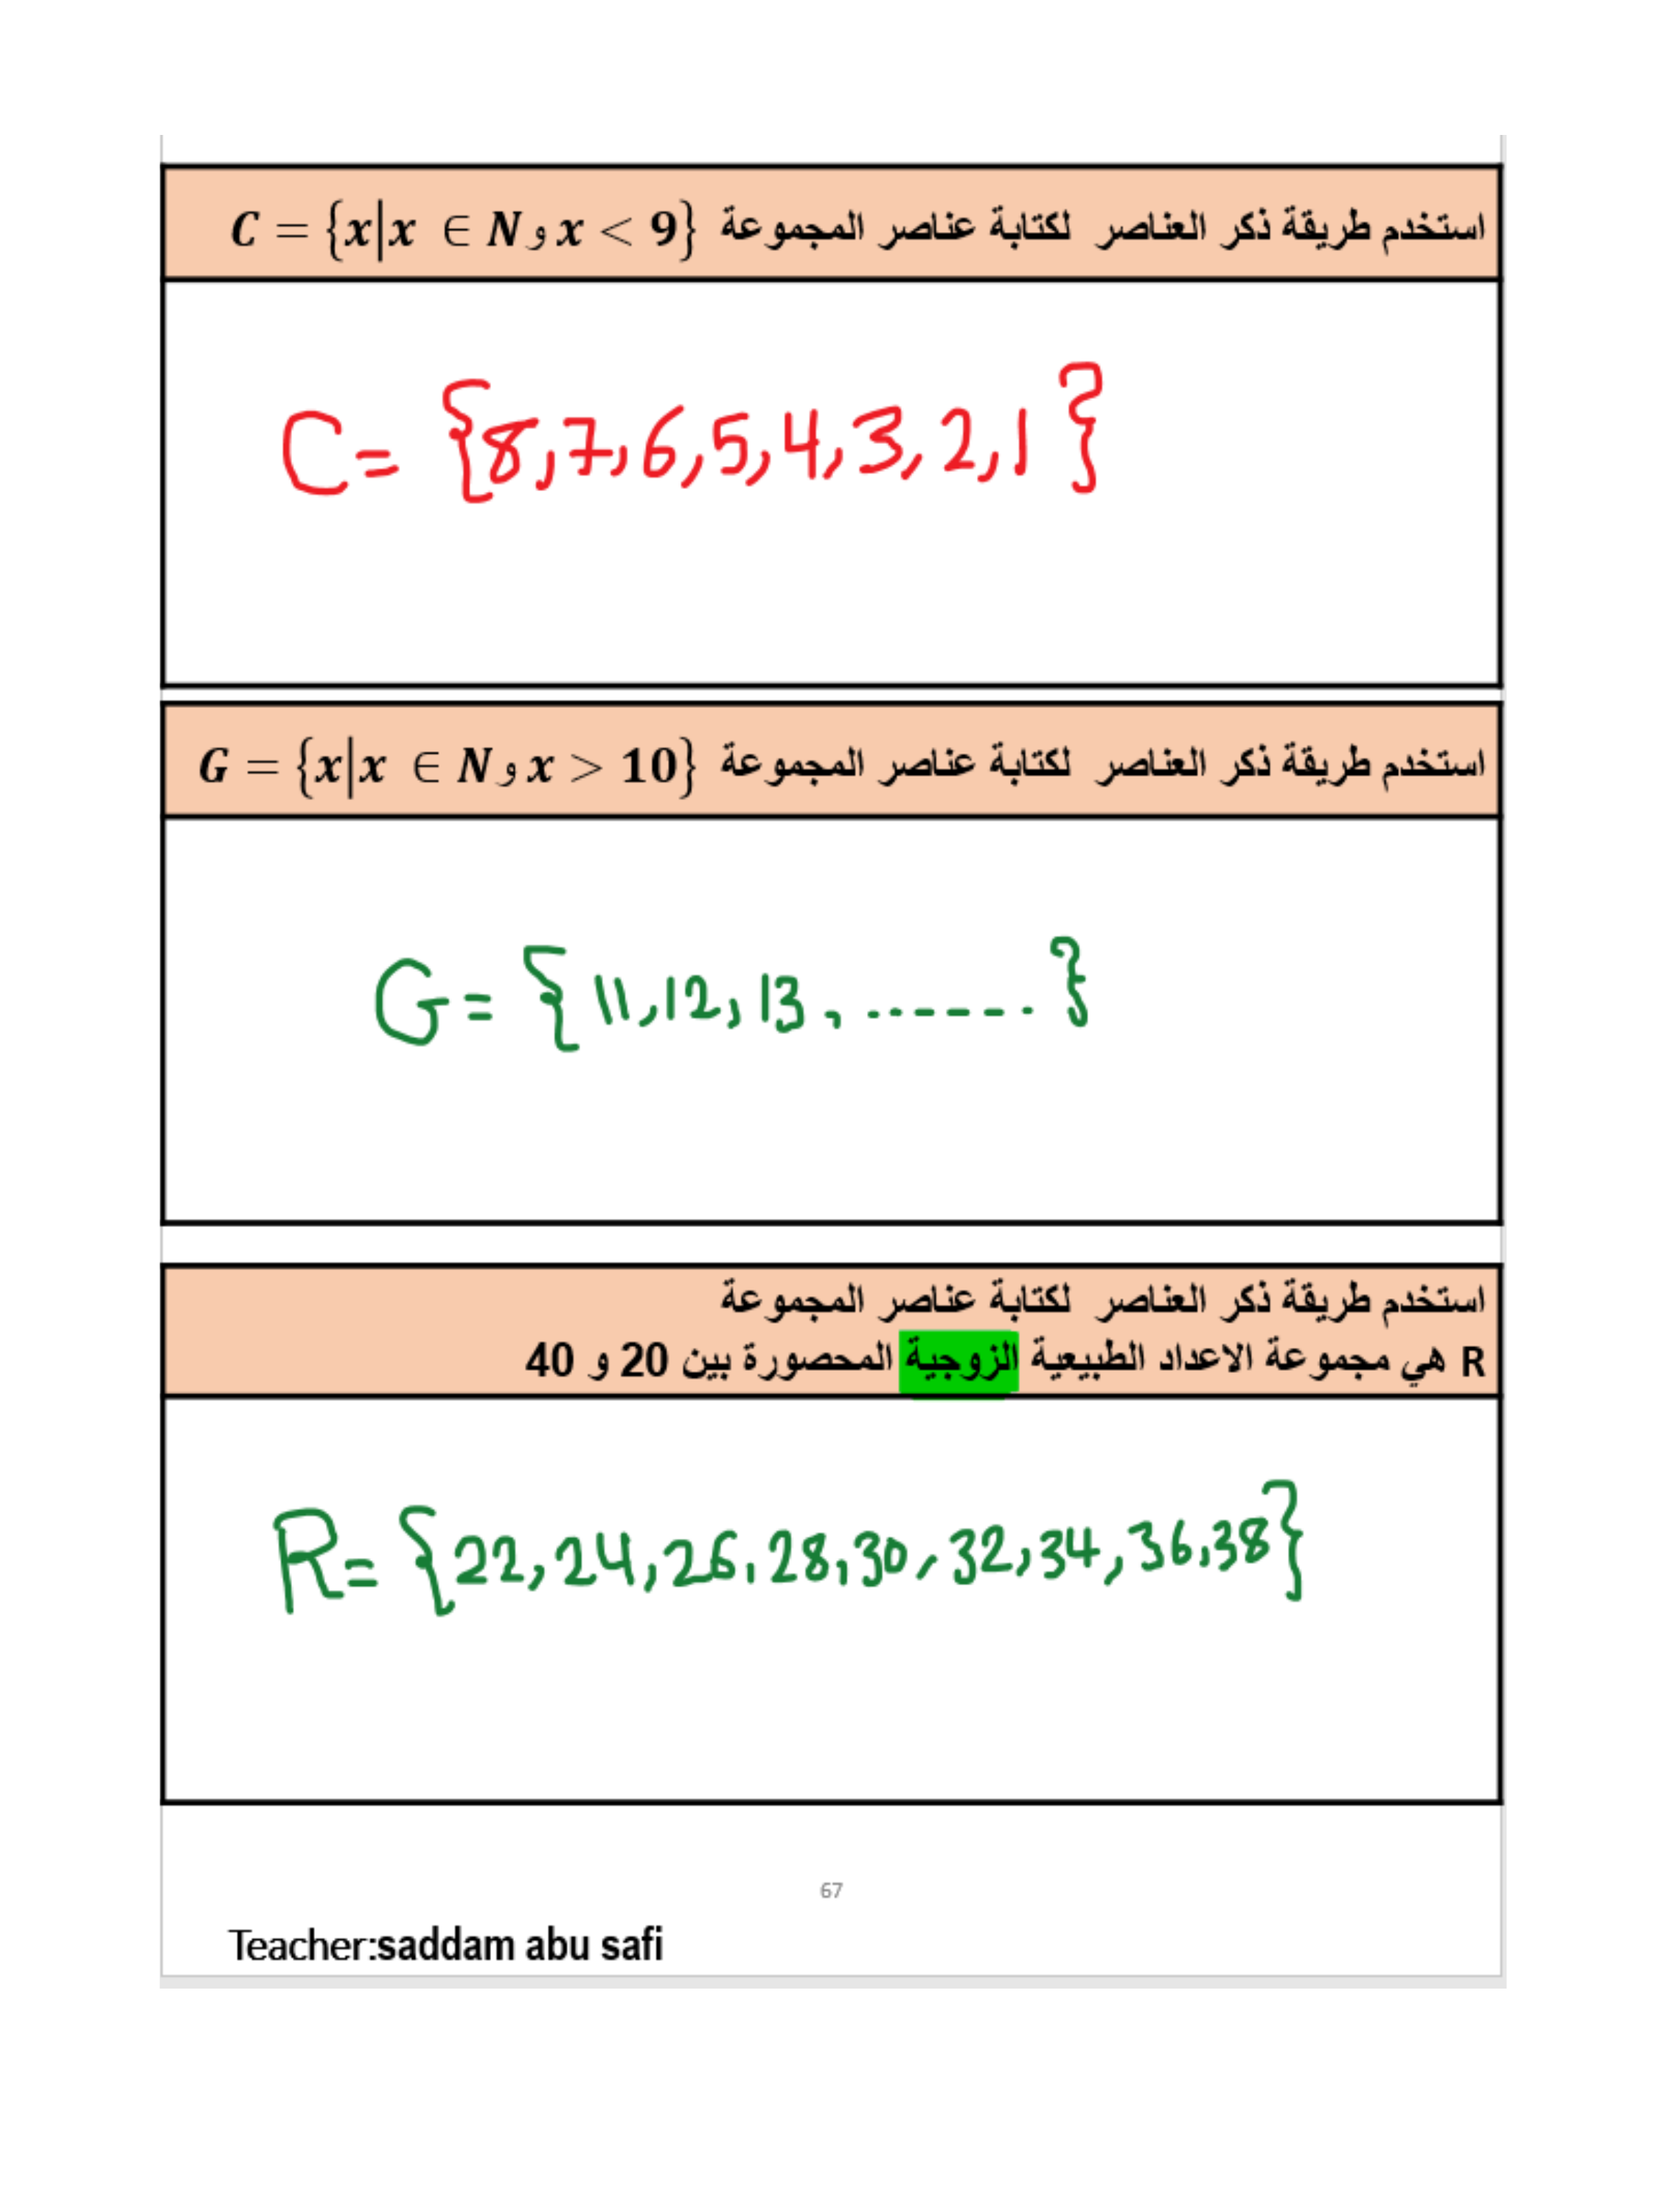 استخدم طريقة ذكر العناصر لكتابة عناصر المجموعة C = {x|x ∈ N و x < 9}
C = {8,7,6,5,4,3,2,1}
استخدم طريقة ذكر العناصر لكتابة عناصر المجموعة G = {x|x ∈ N و x > 10}
G = {11,12,13, .......}
استخدم طريقة ذكر العناصر لكتابة عناصر المجموعة
R هي مجموعة الاعداد الطبيعية الزوجية المحصورة بين 20 و 40
R = {22,24,26,28,30,32,34,36,38}
67
Teacher:saddam abu safi